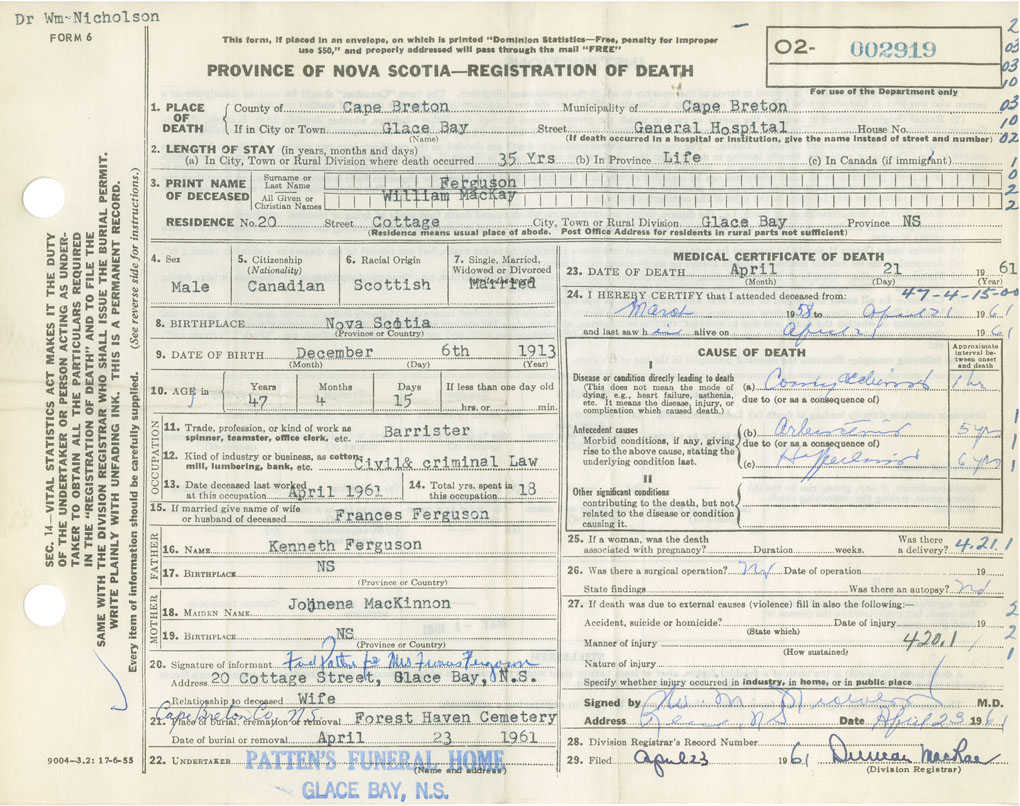 Dr Wm-Nicholson
FORM 6
This form, if placed in an envelope, on which is printed "Dominion Statistics—Free, penalty for improper
use $50," and properly addressed will pass through the mail "FREE"
PROVINCE OF NOVA SCOTIA—REGISTRATION OF DEATH
02- 002919
For use of the Department only
2
03
03
10
03
10
02
1
0
2
2
SEC. 14—VITAL STATISTICS ACT MAKES IT THE DUTY
OF THE UNDERTAKER OR PERSON ACTING AS UNDER-
TAKER TO OBTAIN ALL THE PARTICULARS REQUIRED
IN THE "REGISTRATION OF DEATH" AND TO FILE THE
SAME WITH THE DIVISION REGISTRAR WHO SHALL ISSUE THE BURIAL PERMIT.
WRITE PLAINLY WITH UNFADING INK. THIS IS A PERMANENT RECORD.
Every item of information should be carefully supplied. (See reverse side for instructions.)
1. PLACE OF DEATH
County of Cape Breton Municipality of Cape Breton
If in City or Town Glace Bay Street General Hospital House No.
(Name) (If death occurred in a hospital or institution, give the name instead of street and number)
2. LENGTH OF STAY (in years, months and days)
(a) In City, Town or Rural Division where death occurred 35 Yrs (b) In Province Life (c) In Canada (if immigrant)
3. PRINT NAME OF DECEASED
Surname or Last Name Ferguson
All Given or Christian Names William MacKay
RESIDENCE No. 20 Street Cottage City, Town or Rural Division Glace Bay Province NS
(Residence means usual place of abode. Post Office Address for residents in rural parts not sufficient)
4. Sex
Male
5. Citizenship
(Nationality)
Canadian
6. Racial Origin
Scottish
7. Single, Married,
Widowed or Divorced
Married
8. BIRTHPLACE Nova Scotia
(Province or Country)
9. DATE OF BIRTH December 6th 1913
(Month) (Day) (Year)
10. AGE in
Years Months Days If less than one day old
47 4 15 hrs. or min.
OCCUPATION
11. Trade, profession, or kind of work as
spinner, teamster, office clerk, etc. Barrister
12. Kind of industry or business, as cotton
mill, lumbering, bank, etc. Civil& criminal Law
13. Date deceased last worked
at this occupation April 1961
14. Total yrs. spent in
this occupation 18
15. If married give name of wife
or husband of deceased Frances Ferguson
FATHER
16. NAME Kenneth Ferguson
17. BIRTHPLACE NS
(Province or Country)
MOTHER
18. MAIDEN NAME Johnena MacKinnon
19. BIRTHPLACE NS
(Province or Country)
20. Signature of informant Mrs Ferguson
Address 20 Cottage Street, Glace Bay, N.S.
Relationship to deceased Wife
Cape Breton Co. N.S.
21. Place of burial, cremation or removal Forest Haven Cemetery
Date of burial or removal April 23 1961
22. UNDERTAKER PATTEN'S FUNERAL HOME
(Name and address)
GLACE BAY, N.S.
9004—3.2: 17-6-55
MEDICAL CERTIFICATE OF DEATH
23. DATE OF DEATH April 21 1961
(Month) (Day) (Year)
24. I HEREBY CERTIFY that I attended deceased from: 47-4-15-00
March 1958 to April 21 1961
and last saw him alive on April 21 1961
CAUSE OF DEATH
Approximate
interval be-
tween onset
and death
I
Disease or condition directly leading to death
(This does not mean the mode of
dying, e.g., heart failure, asthenia,
etc. It means the disease, injury, or
complication which caused death.)
(a) 1 hr
due to (or as a consequence of)
Antecedent causes
Morbid conditions, if any, giving
rise to the above cause, stating the
underlying condition last.
(b) 5 yrs
due to (or as a consequence of)
(c) 6 yrs
1
1
1
II
Other significant conditions
contributing to the death, but not
related to the disease or condition
causing it.
25. If a woman, was the death
associated with pregnancy? Duration weeks. Was there
a delivery? 4.21.1
26. Was there a surgical operation? No Date of operation 19
State findings Was there an autopsy? No
27. If death was due to external causes (violence) fill in also the following:—
Accident, suicide or homicide? Date of injury 19
(State which)
Manner of injury 420.1
(How sustained)
Nature of injury
Specify whether injury occurred in industry, in home, or in public place
2
1
Signed by Wm. M. Nicholson M.D.
Address Glace Bay NS Date April 23 1961
28. Division Registrar's Record Number
29. Filed April 23 1961 Duncan MacRae
(Division Registrar)